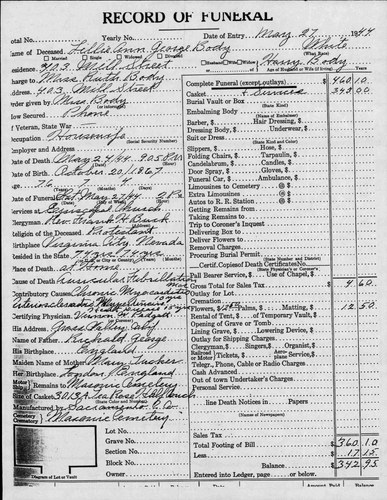 RECORD OF FUNERAL
otal No. Yearly No. Date of Entry May 27 1944
Name of Deceased Lillie Ann George Body White
Married Single Widowed Divorced
esidence 403 Mill Street
Husband Wife Widow of Harry Body
Age of Husband or Wife (if living) Years
harge to Miss Ruth Body
Address 403 Mill Street
rder given by Miss Body
ow Secured Phone
f Veteran, State War
ccupation Housewife
(Social Security Number)
mployer and Address
ate of Death May 24/44 9:05 P.M.
ate of Birth October 20/1867
ge 76
ate of Funeral Sat May 27/44 2 P.M.
ervices at Episcopal Church
lergyman Rev. Frank H. Buck
eligion of the Deceased Protestant
irthplace Virginia City, Nevada
esided in the State 74 yrs
Place of Death at Home
Cause of Death
Contributory Causes Chronic Myocarditis
Certifying Physician
His Address Grass Valley, Calif
Name of Father Richard George
His Birthplace England
Maiden Name of Mother Mary Tucker
Her Birthplace London, England
Remains to Masonic Cemetery
Size of Casket
Manufactured by Sacramento C. Co.
Cemetery Masonic Cemetery
Lot No.
Grave No.
Section No.
Block No.
Owner
Diagram of Lot or Vault
Complete Funeral (except outlays) $ 460 10
Casket + Service 348 00
Burial Vault or Box
(State Kind)
Embalming Body
(Name of Embalmer)
Barber, $ Hair Dressing, $
Dressing Body, $ Underwear, $
Suit or Dress
(State Kind and Color)
Slippers, $ Hose, $
Folding Chairs, $ Tarpaulin, $
Candelabrum, $ Candles, $
Door Spray, $ Gloves, $
Funeral Car, $ Ambulance, $
Limousines to Cemetery @ $
Extra Limousines @ $
Autos to R. R. Station @ $
Getting Remains from
Taking Remains to
Trip to Coroner's Inquest
Delivering Box to
Deliver Flowers to
Removal Charges
Procuring Burial Permit
(State Number and District)
Certif. Copies of Death Certificates No.
(State Physician's or Coroner's)
Pall Bearer Service, $ Use of Chapel, $
Gross Total for Sales Tax $ 4 60
Outlay for Lot
Cremation
Flowers, $ Palms, $ Matting, $ 12 50
Rental of Tent, $ of Temporary Vault, $
Opening of Grave or Tomb
Lining Grave, $ Lowering Device, $
Outlay for Shipping Charges
Clergyman, $ Singers, $ Organist, $
Railroad or Motor Tickets, $ Aeroplane Service, $
Telegr., Phone, Cable or Radio Charges
Cash Advanced
Out of town Undertaker's Charges
Personal Service
line Death Notices in Papers
(Names of Newspapers)
Sales Tax
Total Footing of Bill $ 360 10
Less 17 15
Balance $ 342 95
Entered into Ledger, page or below.